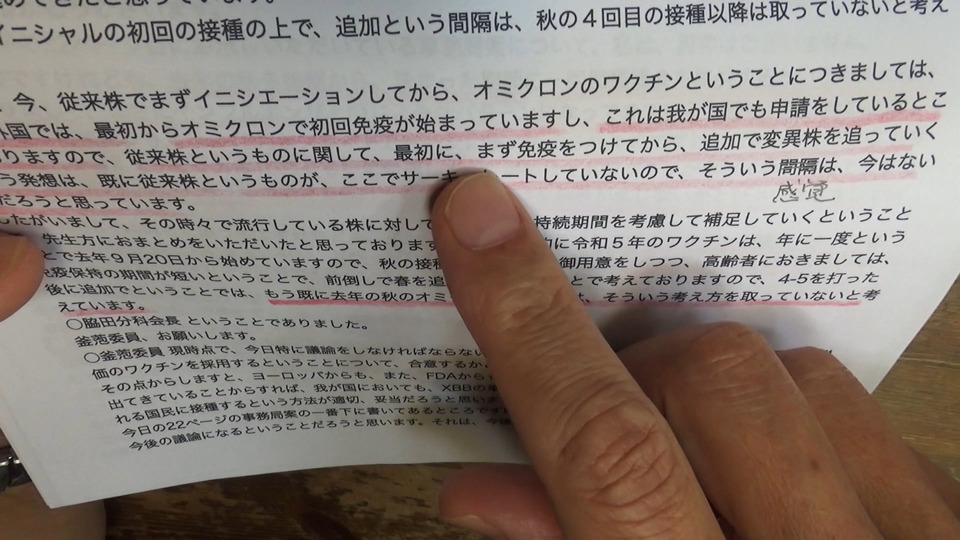 めてきたと思っています。
イニシャルの初回の接種の上で、追加という間隔は、秋の４回目の接種以降は取っていないと考え
、今、従来株でまずイニシエーションしてから、オミクロンのワクチンということにつきましては、
外国では、最初からオミクロンで初回免疫が始まっていますし、これは我が国でも申請をしているとこ
りますので、従来株というものに関して、最初に、まず免疫をつけてから、追加で変異株を追っていく
う発想は、既に従来株というものが、ここでサーキ ートしていないので、そういう間隔は、今はない
感覚
だろうと思っています。
したがいまして、その時々で流行している株に対して 持続期間を考慮して補足していくということ
先生方におまとめをいただいたと思っております に令和５年のワクチンは、年に一度という
とで去年９月20日から始めていますので、秋の接種 御用意をしつつ、高齢者におきましては、
免疫保持の期間が短いということで、前倒しで春を追 とで考えておりますので、4-5を打った
後に追加でということでは、もう既に去年の秋のオミ は、そういう考え方を取っていないと考
えています。
○脇田分科会長 ということでありました。
釜萢委員、お願いします。
○釜萢委員 現時点で、今日特に議論をしなければならない
価のワクチンを採用するということについて、合意するか、
その点からしますと、ヨーロッパからも、また、FDAから
出てきていることからすれば、我が国においても、XBBの単
れる国民に接種するという方法が適切、妥当だろうと思いま
今日の22ページの事務局案の一番下に書いてあるところです
今後の議論になるということだろうと思います。それは、今後